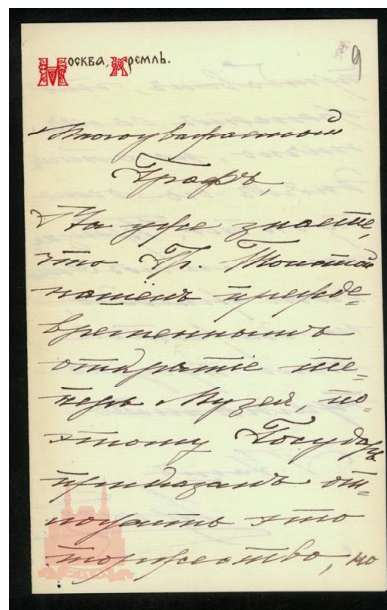 Москва, Кремль.
9
Многоуважаемый
Графъ,
Вы уже знаете,
что Гр. Толстой
нашелъ прежде=
временнымъ
открытіе те=
перь Музея, по=
этому Государь
приказалъ от=
ложить это
торжество, но